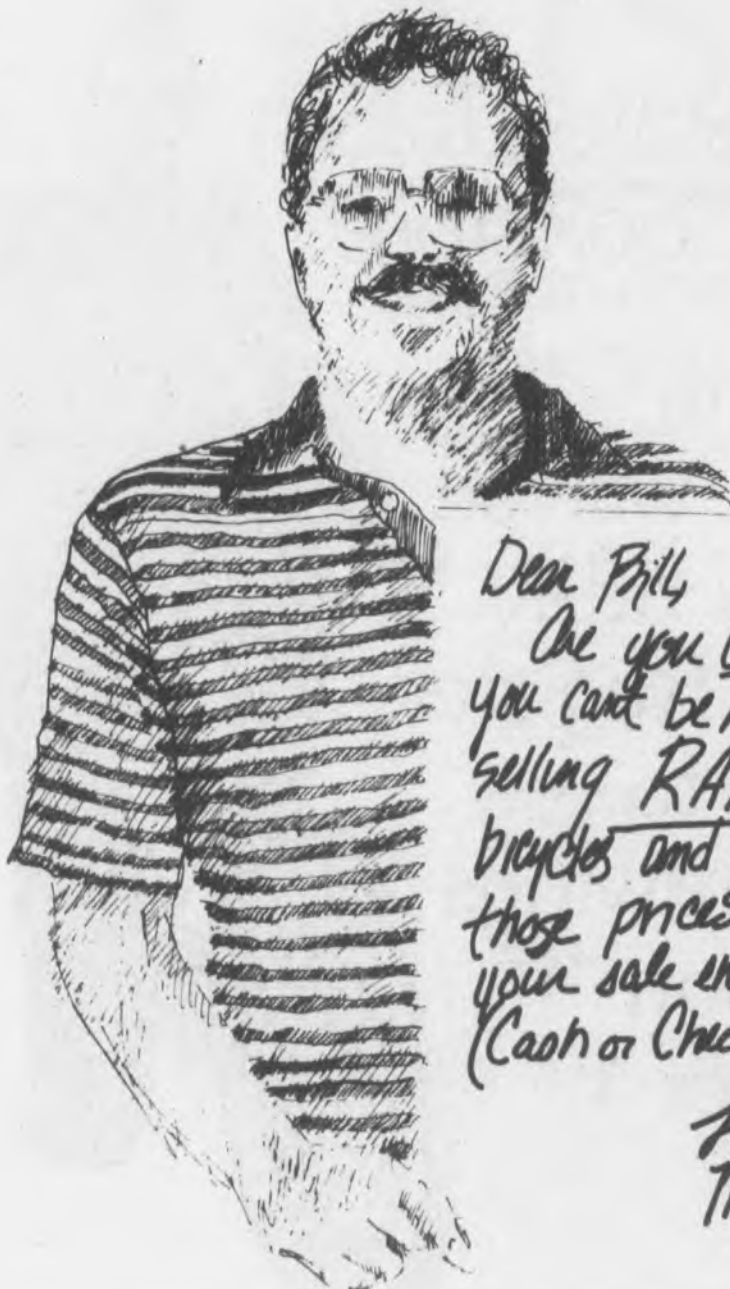 Dear Bill,
Are you
you can't be
selling RA
bicycles and
those prices
your sale
(Cash or Chec